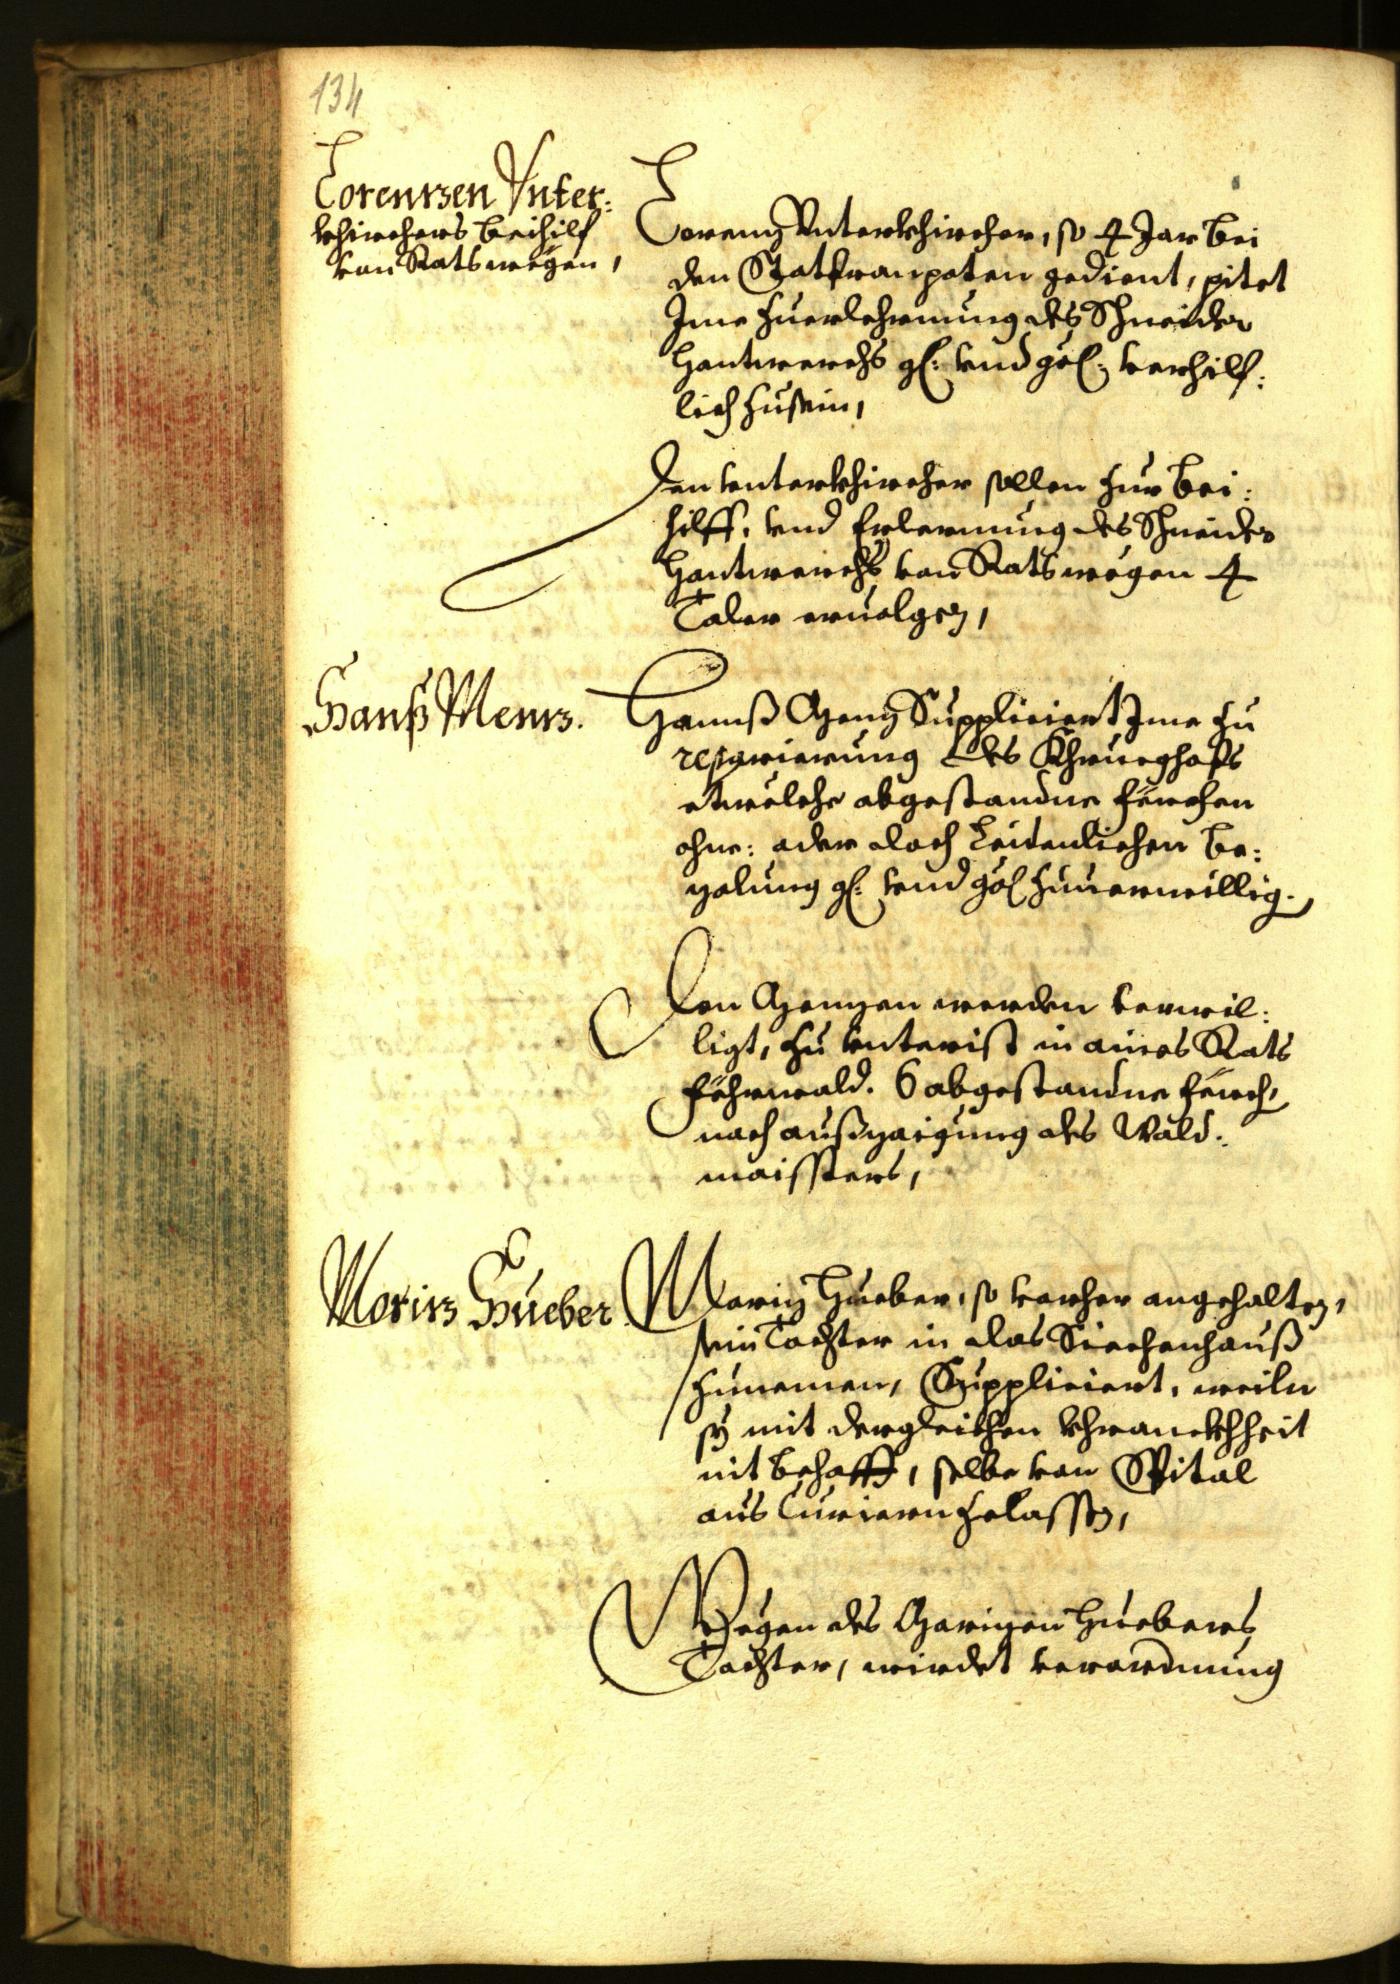 134
Lorentzen Unter:
khirchers Beihilf
von Rats wegen,
Lorenz Unterkhircher, so 4 Jar bei
den Statkranpoten gedient, pitet
Ime zuerlehrnung des Schneider
Hantwerchs gl: vnd göl: verhilf:
lich zusein,
Den Unterkhircher sollen zur Bei:
hilff, vnd Erlernung des Schneider
Hantwerchs von Rats wegen 4
Taler ervolgen,
Hanß Mentz.
Hannß Menz Suppliciert Ime zu
reparierung des
etwelche abgestandne förchen
ohne: oder doch Leidenlichen be:
zalung gl: vnd göl zuuerwillig.
Den Menzen werden verwil:
ligt, zu vnterist in aines Rats
föhrwald. 6 abgestandne förch,
nach außzaigung des Wald:
maissters,
Moritz Hueber
Moriz Hueber, so vorher angehalten,
sein Tochter in das Siechenhauß
zunemen, Suppliciert, weiln
sÿ mit dergleichen khranckhheit
nit behafft, selbe von Spital
aus Curiern zelassen,
Wegen des Morizen Huebers
Tochter, wirdet verordnung